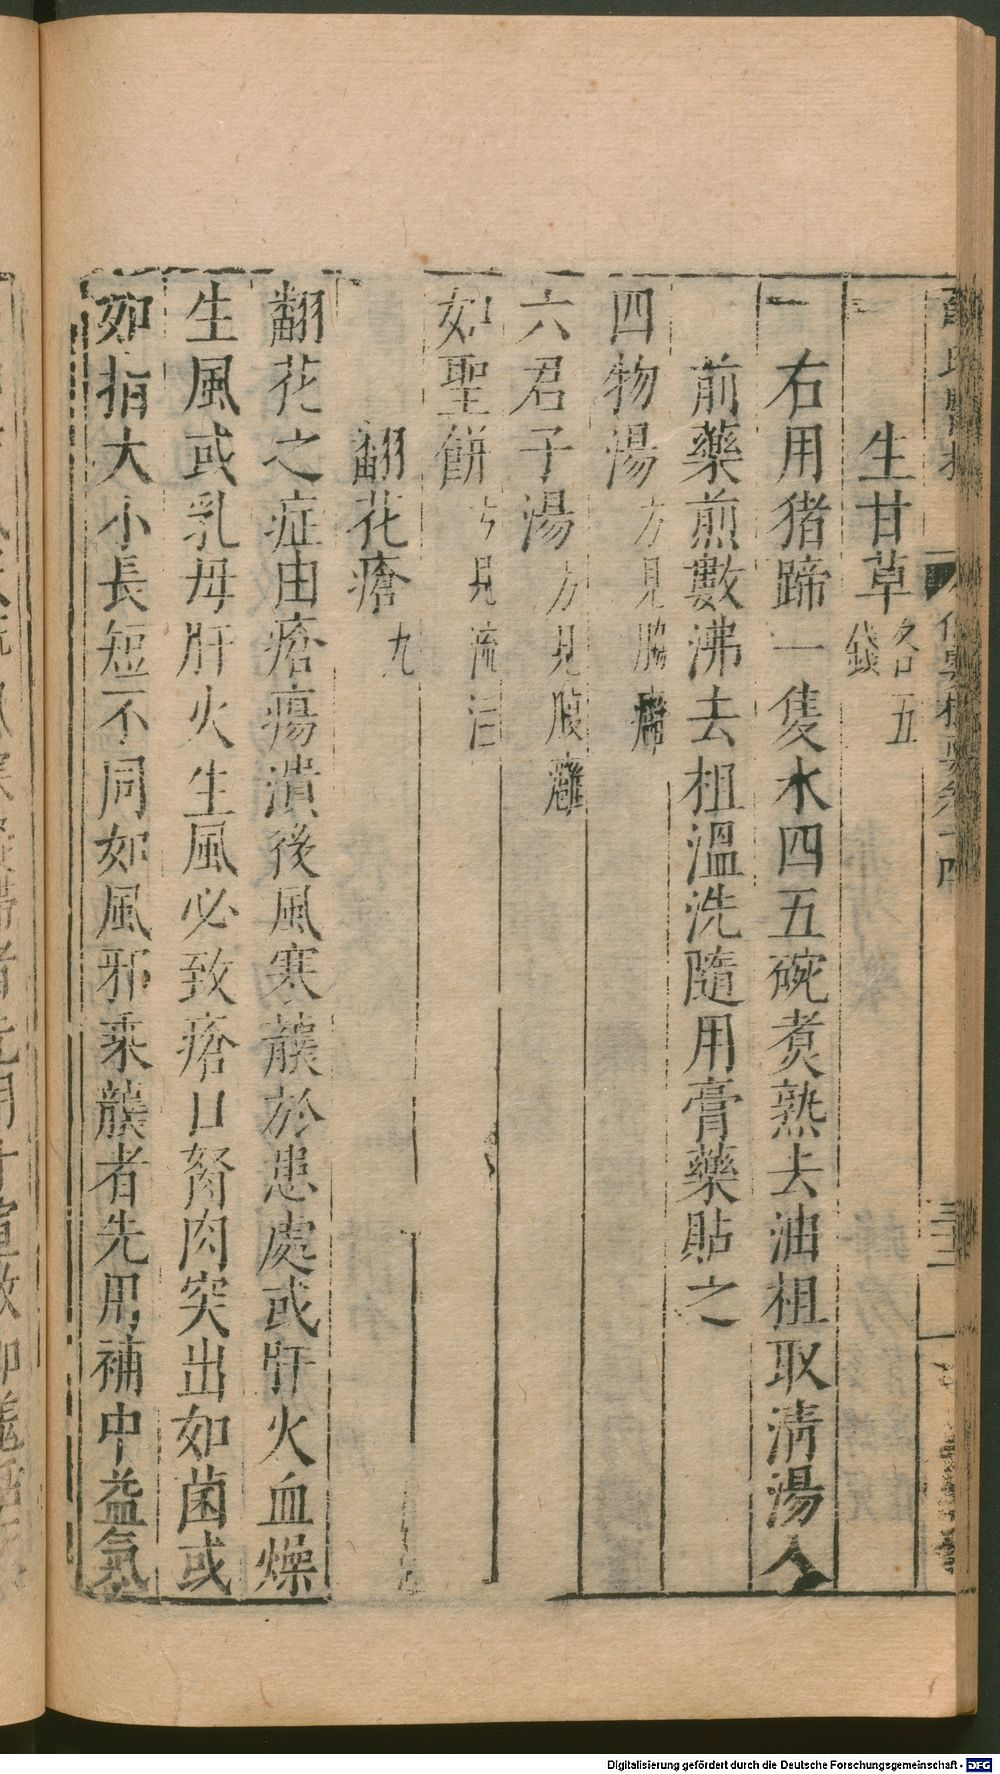 生甘草各五錢
一右用猪蹄一隻水四五碗煑熟去油柤取清湯入
前藥煎數沸去柤溫洗隨用膏藥貼之
四物湯方見腦癰
六君子湯方見腹癰
如聖餅方見流注
翻花瘡九
翻花之症由瘡瘍潰後風寒襲於患處或肝火血燥
生風或乳母肝火生風必致瘡口胬肉突出如菌或
如指大小長短不同如風邪乘襲者先用補中益氣
Digitalisierung gefördert durch die Deutsche Forschungsgemeinschaft - DFG